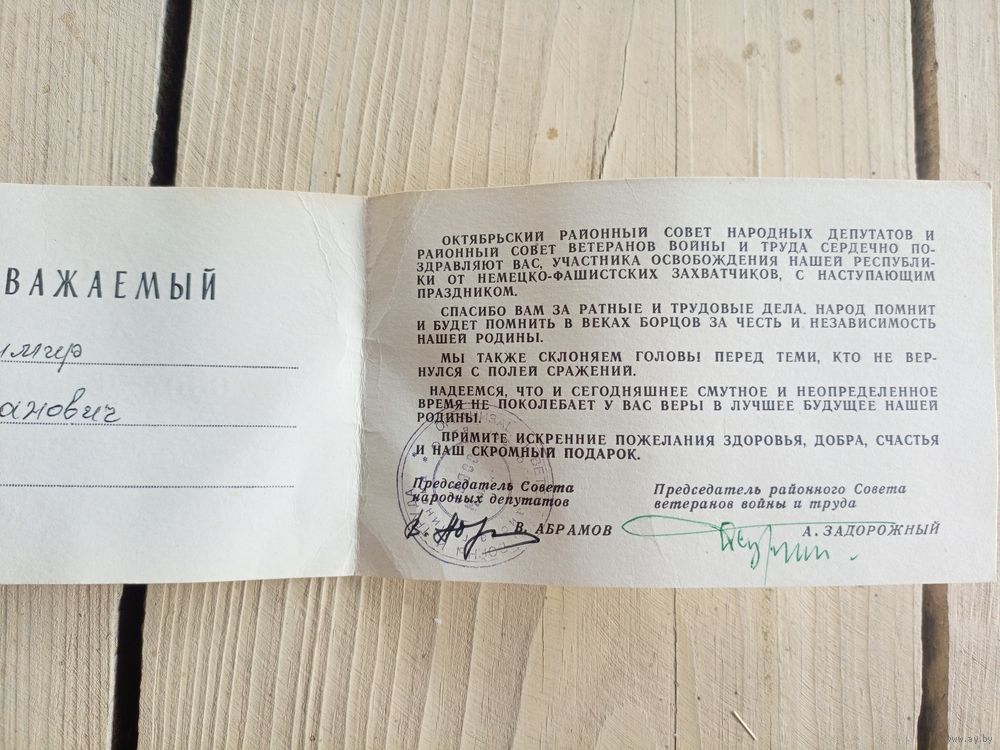 ВАЖАЕМЫЙ
имир
анович
ОКТЯБРЬСКИЙ РАЙОННЫЙ СОВЕТ НАРОДНЫХ ДЕПУТАТОВ И
РАЙОННЫЙ СОВЕТ ВЕТЕРАНОВ ВОЙНЫ И ТРУДА СЕРДЕЧНО ПО-
ЗДРАВЛЯЮТ ВАС, УЧАСТНИКА ОСВОБОЖДЕНИЯ НАШЕЙ РЕСПУБЛИ-
КИ ОТ НЕМЕЦКО-ФАШИСТСКИХ ЗАХВАТЧИКОВ, С НАСТУПАЮЩИМ
ПРАЗДНИКОМ.
СПАСИБО ВАМ ЗА РАТНЫЕ И ТРУДОВЫЕ ДЕЛА. НАРОД ПОМНИТ
И БУДЕТ ПОМНИТЬ В ВЕКАХ БОРЦОВ ЗА ЧЕСТЬ И НЕЗАВИСИМОСТЬ
НАШЕЙ РОДИНЫ.
МЫ ТАКЖЕ СКЛОНЯЕМ ГОЛОВЫ ПЕРЕД ТЕМИ, КТО НЕ ВЕР-
НУЛСЯ С ПОЛЕЙ СРАЖЕНИЙ.
НАДЕЕМСЯ, ЧТО И СЕГОДНЯШНЕЕ СМУТНОЕ И НЕОПРЕДЕЛЕННОЕ
ВРЕМЯ НЕ ПОКОЛЕБАЕТ У ВАС ВЕРЫ В ЛУЧШЕЕ БУДУЩЕЕ НАШЕЙ
РОДИНЫ.
ПРИМИТЕ ИСКРЕННИЕ ПОЖЕЛАНИЯ ЗДОРОВЬЯ, ДОБРА, СЧАСТЬЯ
И НАШ СКРОМНЫЙ ПОДАРОК.
Председатель Совета
народных депутатов
В. АБРАМОВ
Председатель районного Совета
ветеранов войны и труда
А. ЗАДОРОЖНЫЙ
www.ay.by